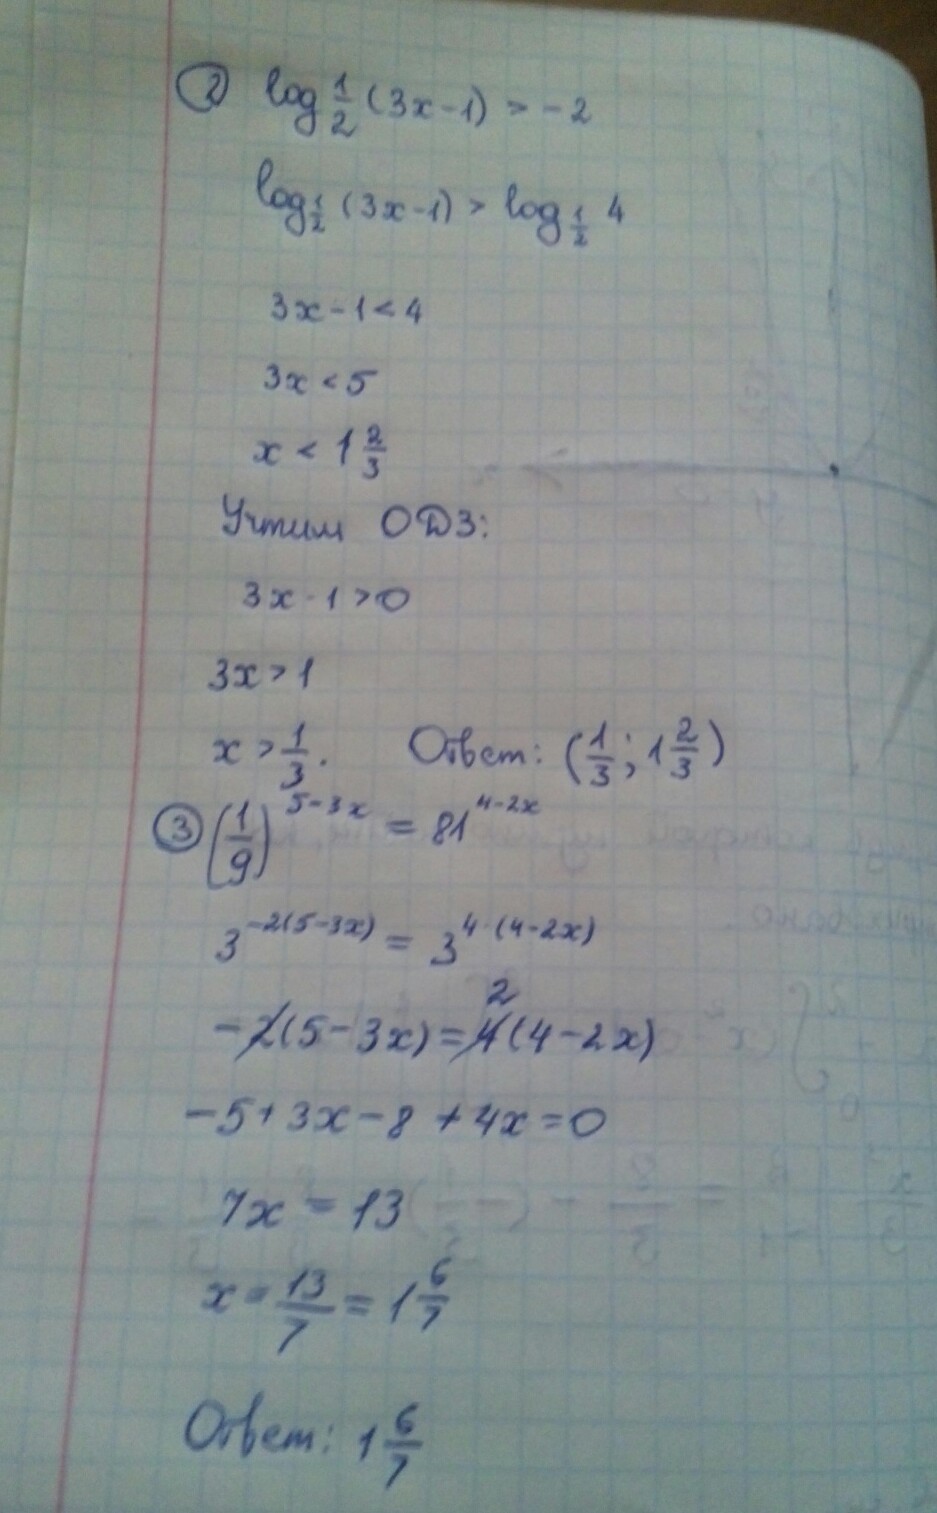 ② log 1/2 (3x-1) > -2
log 1/2 (3x-1) > log 1/2 4
3x-1<4
3x<5
x < 1 2/3
Учтим ОДЗ:
3x-1>0
3x>1
x > 1/3. Ответ: (1/3; 1 2/3)
③ (1/9)^5-3x = 81^4-2x
3^-2(5-3x) = 3^4·(4-2x)
2
-2(5-3x)=4(4-2x)
-5+3x-8+4x=0
7x = 13
x = 13/7 = 1 6/7
Ответ: 1 6/7